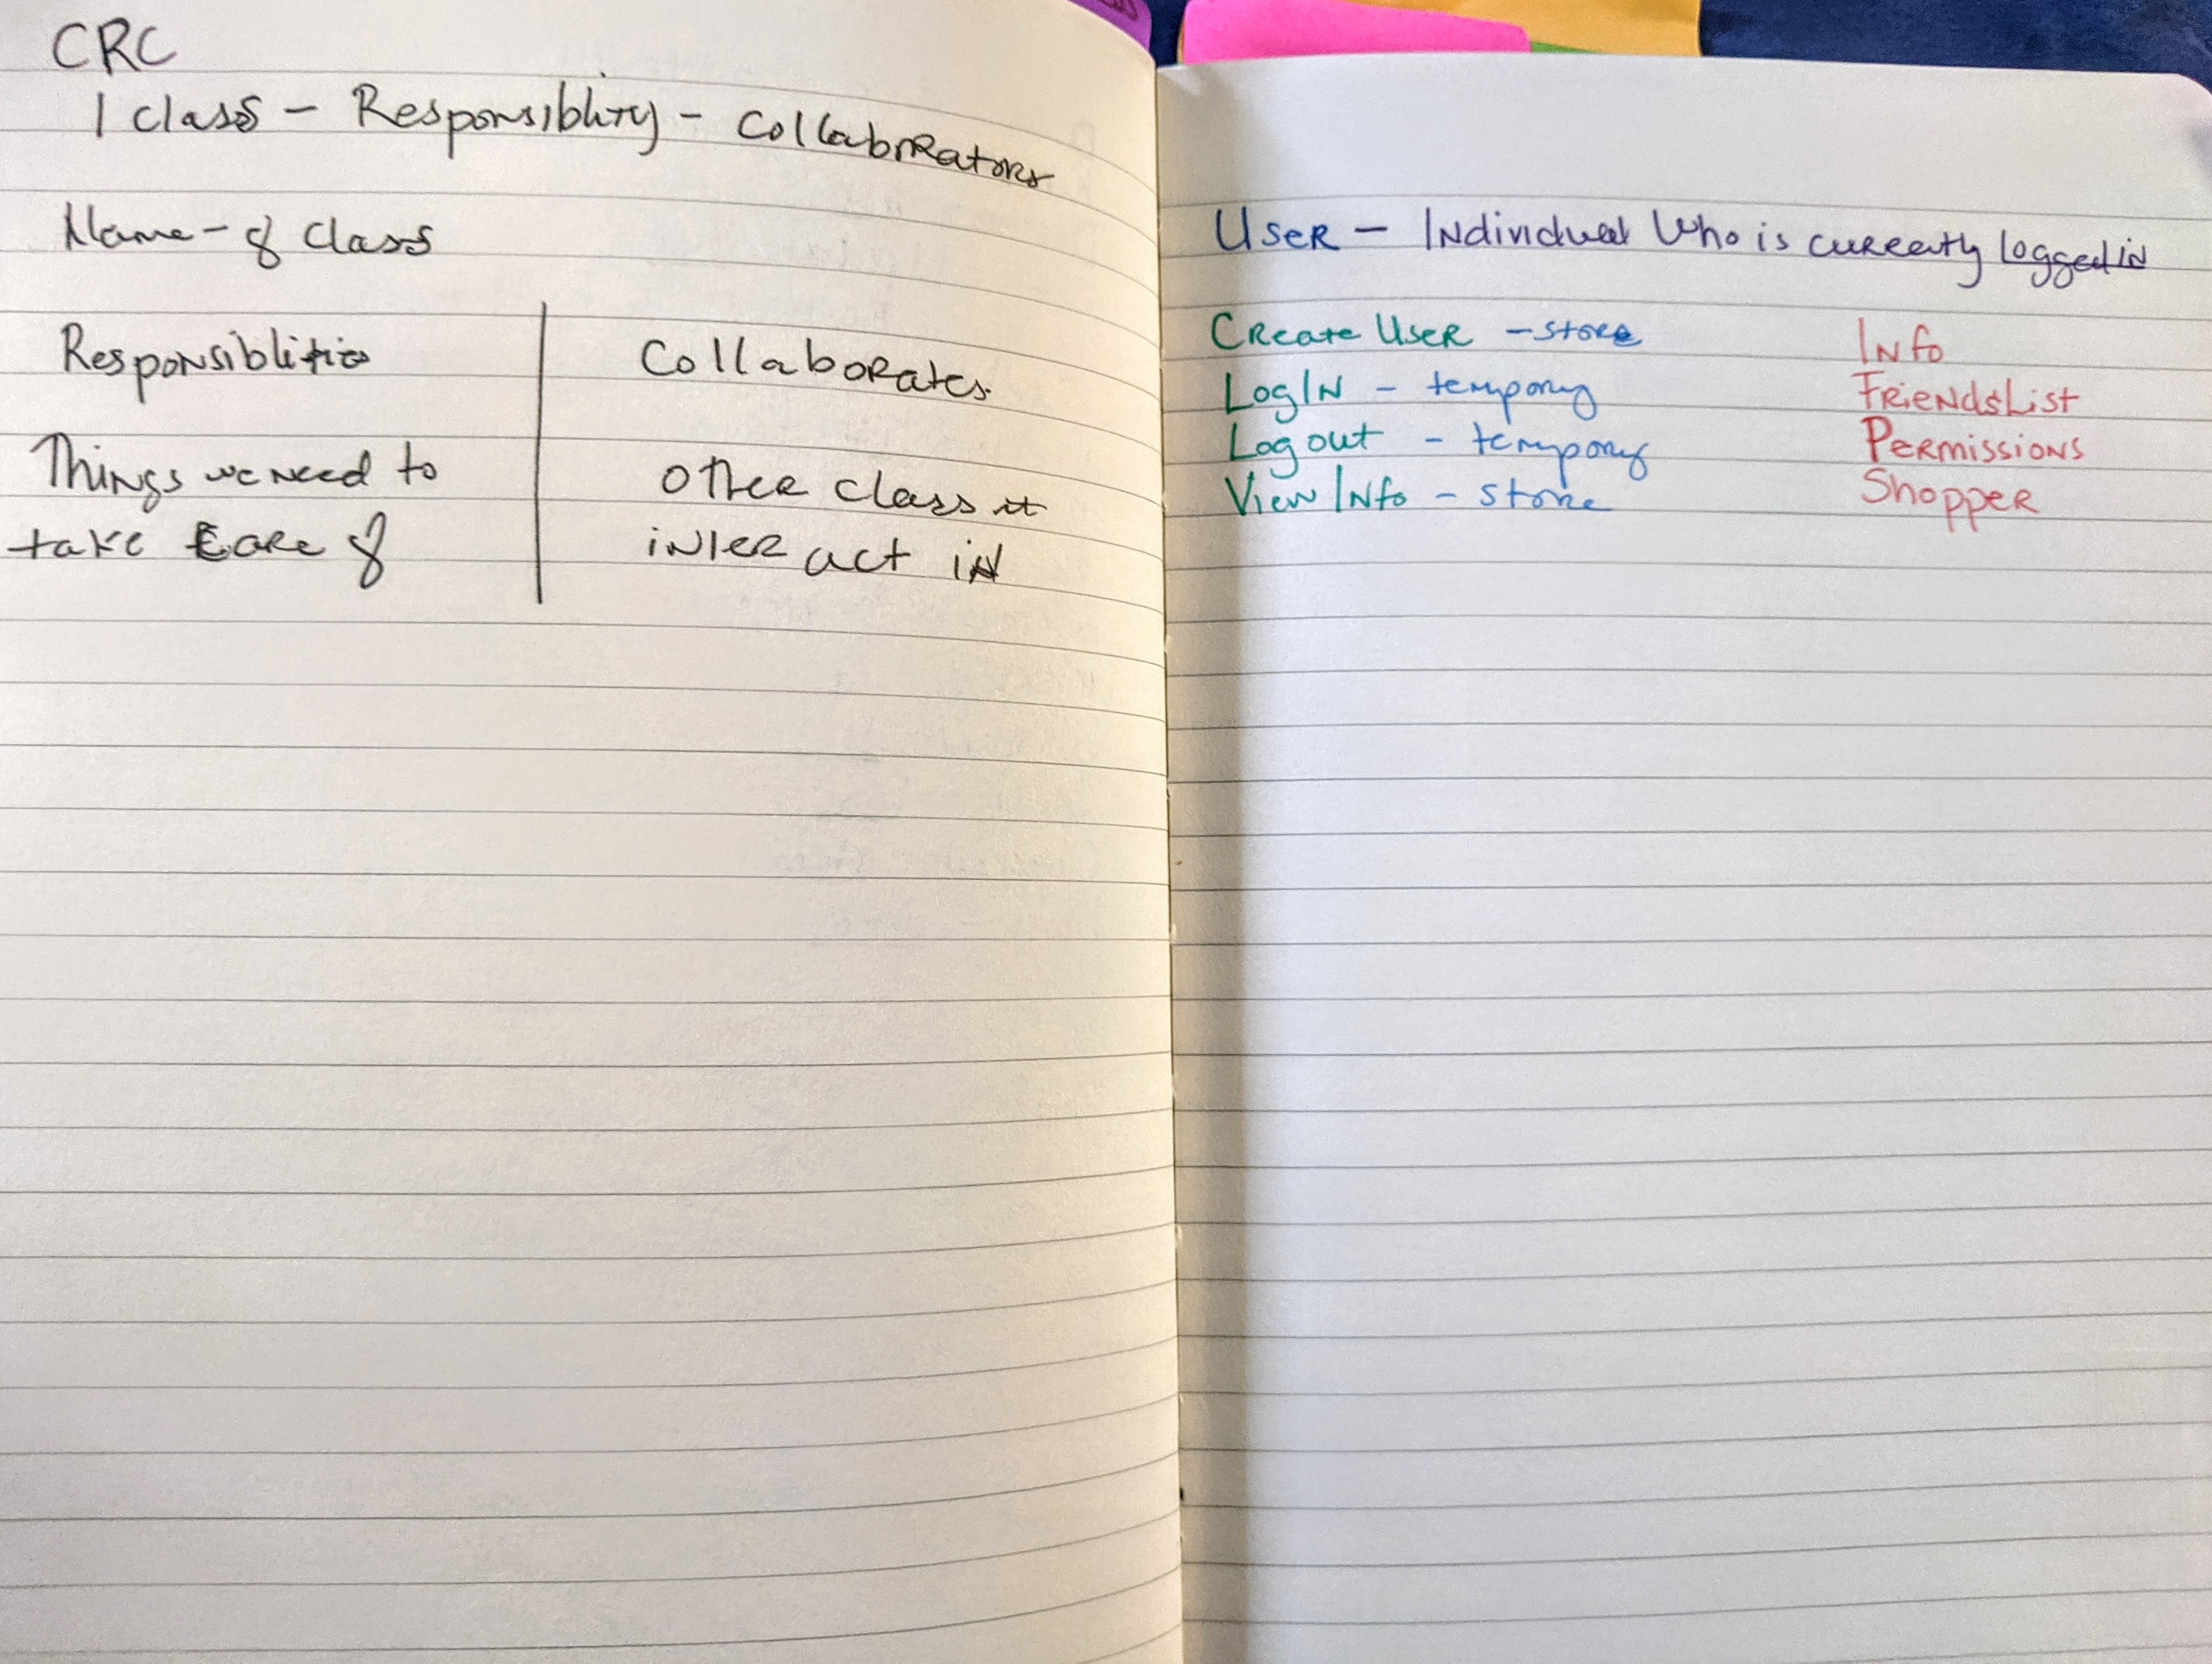 CRC
1 Class - Responsiblity - Collaborators
Name - of Class
Responsiblities
Collaborates.
Things we need to
take Care of
Other class it
interact in
User - Individual who is currently logged in
Create User - store
LogIn - tempory
Log out - tempory
View Info - store
Info
FriendsList
Permissions
Shopper